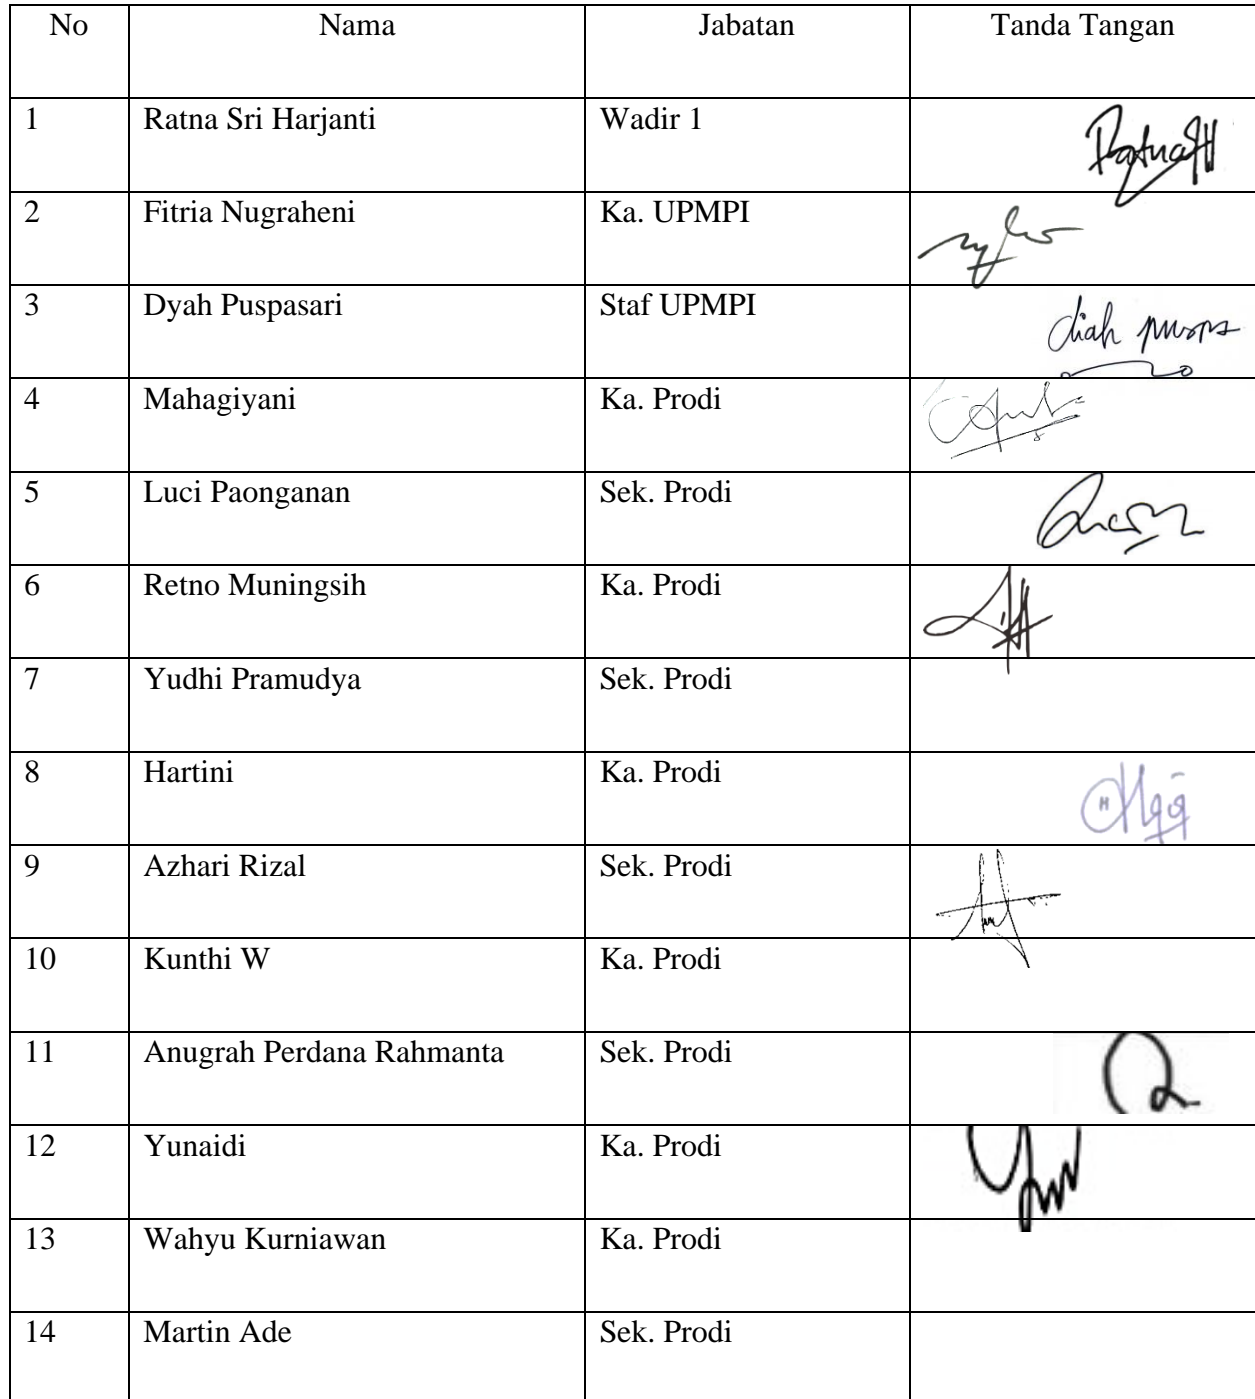 No Nama Jabatan Tanda Tangan
1 Ratna Sri Harjanti Wadir 1 RatnaSH
2 Fitria Nugraheni Ka. UPMPI
3 Dyah Puspasari Staf UPMPI diah
4 Mahagiyani Ka. Prodi
5 Luci Paonganan Sek. Prodi
6 Retno Muningsih Ka. Prodi
7 Yudhi Pramudya Sek. Prodi
8 Hartini Ka. Prodi
9 Azhari Rizal Sek. Prodi
10 Kunthi W Ka. Prodi
11 Anugrah Perdana Rahmanta Sek. Prodi
12 Yunaidi Ka. Prodi
13 Wahyu Kurniawan Ka. Prodi
14 Martin Ade Sek. Prodi